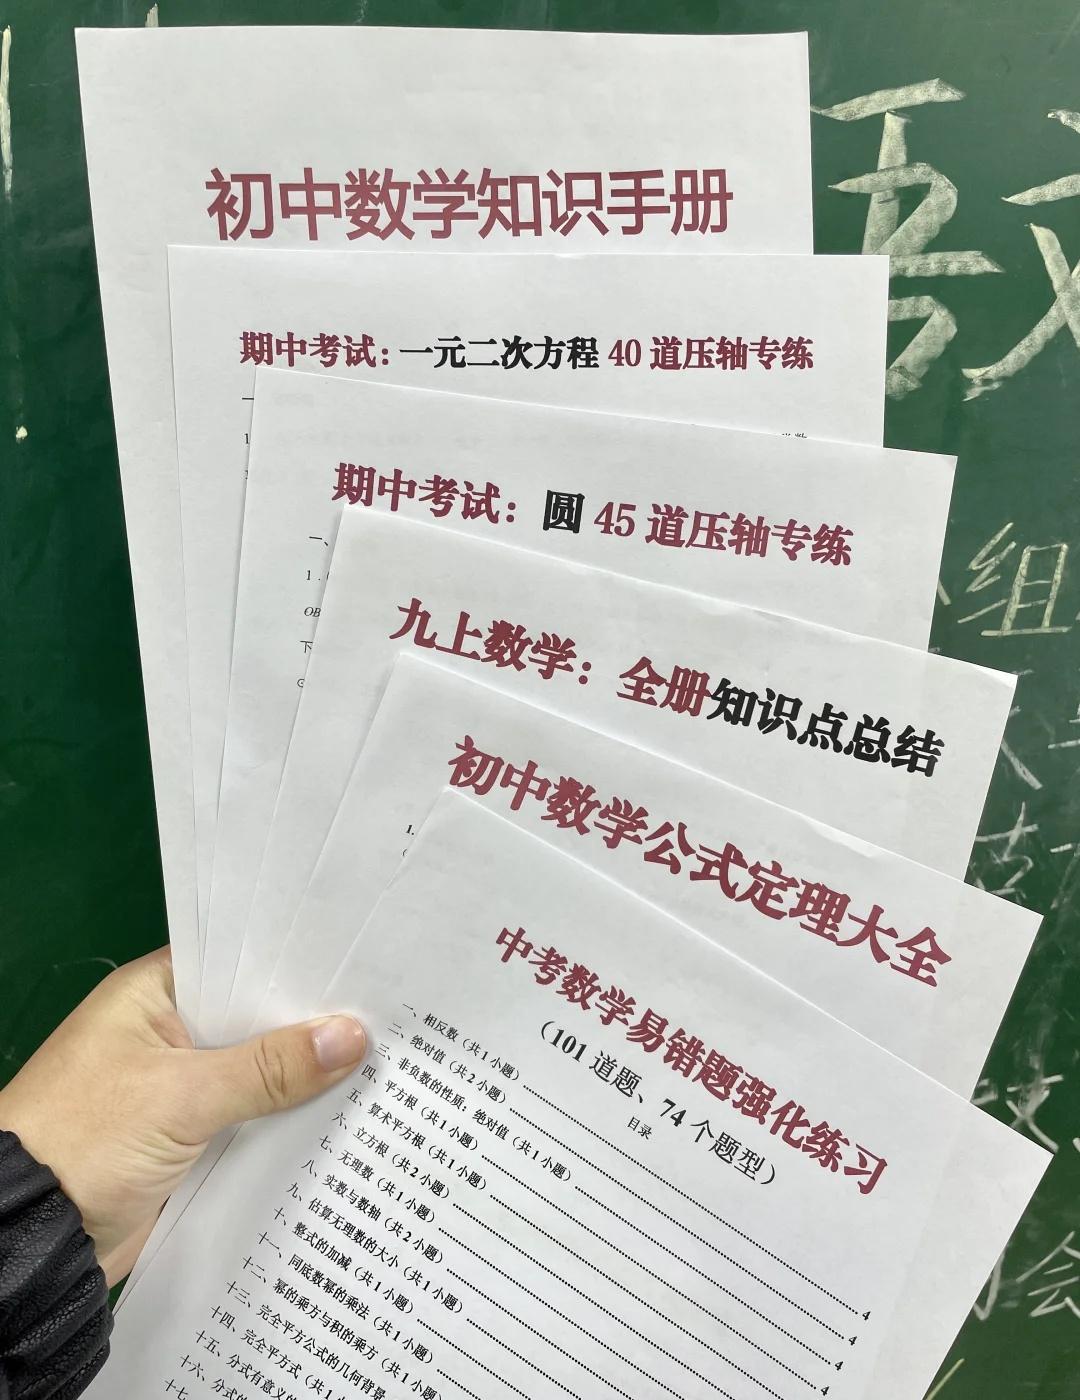 初中数学知识手册
期中考试：一元二次方程 40 道压轴专练
期中考试：圆 45 道压轴专练
一、
1.
OB
下
九上数学：全册知识点总结
初中数学公式定理大全
1.
中考数学易错题强化练习
（101 道题、74 个题型）
目录
一、相反数（共 1 小题） 4
二、绝对值（共 2 小题） 4
三、非负数的性质：绝对值（共 1 小题） 4
四、平方根（共 1 小题） 4
五、算术平方根（共 1 小题）
六、立方根（共 2 小题）
七、无理数（共 1 小题）
八、实数与数轴（共 2 小题）
九、估算无理数的大小（共 1 小题）
十、整式的加减（共 1 小题）
十一、同底数幂的乘法（共 1 小题）
十二、幂的乘方与积的乘方（共 1 小题）
十三、完全平方公式的几何背景
十四、完全平方式（共 1
十五、分式有意义的
十六、分式的
十七、
语文
组